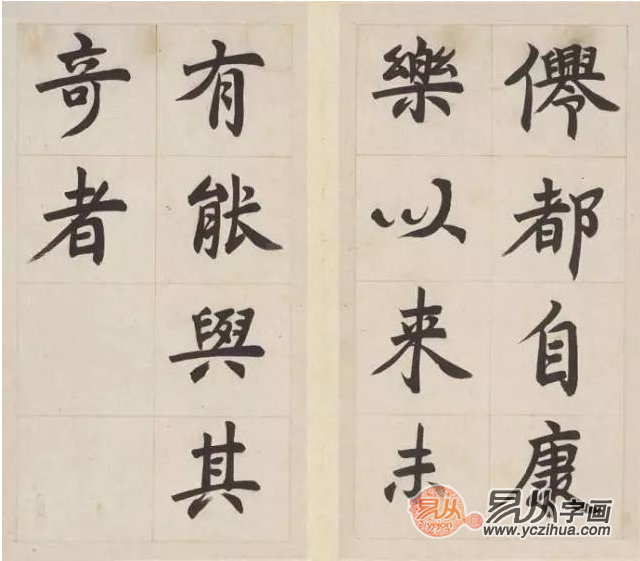 僊都自康
樂以来未
有能與其
奇者
易从
易从字画
www.yczihua.com